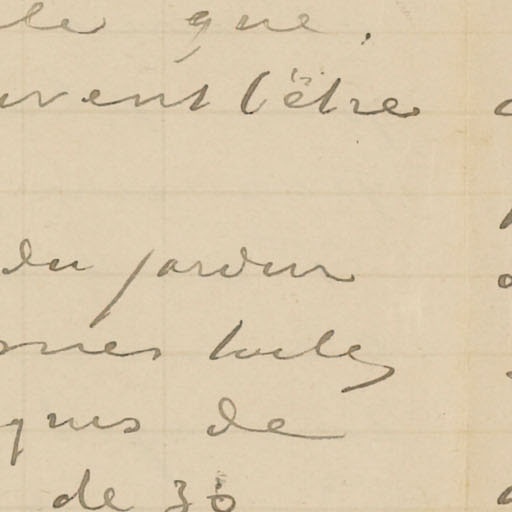 le que
uvent l'être
du jardin
ornes toiles
ques de
de 30